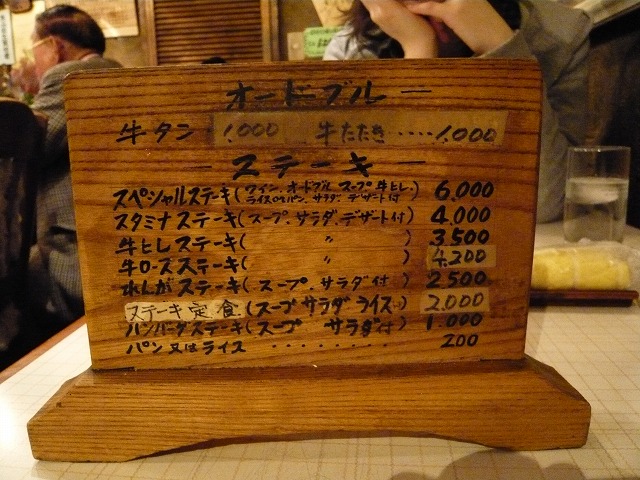 オードブル
牛タン 1,000 牛たたき・・・・1,000
ステーキ
スペシャルステーキ(ワイン、オードブル スープ 牛ヒレ、ライスorパン、サラダ、デザート付) 6,000
スタミナステーキ(スープ、サラダ、デザート付) 4,000
牛ヒレステーキ( 〃 ) 3,500
牛ロースステーキ( 〃 ) 4,200
水しがステーキ(スープ、サラダ付) 2,500
ステーキ定食(スープ サラダ ライス付) 2,000
ハンバーグステーキ(スープ サラダ付) 1,000
パン又はライス ・・・・・・・・ 200